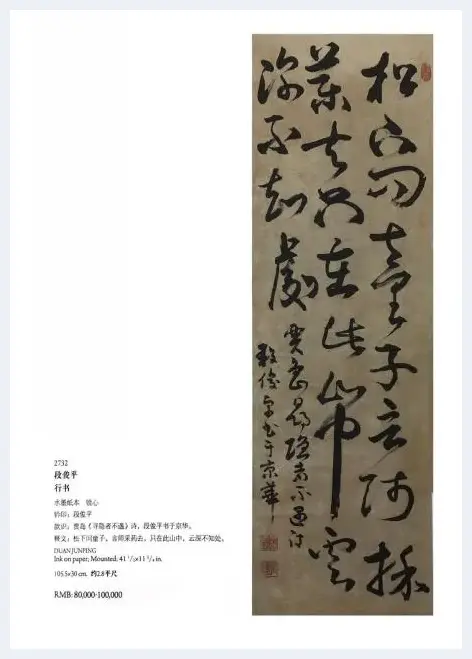 松下问童子言师採
药去只在此山中云
深不知处
贾岛寻隐者不遇诗
段俊平书于京华
2732
段俊平
行书
水墨纸本 镜心
钤印：段俊平
款识：贾岛《寻隐者不遇》诗，段俊平书于京华。
释文：松下问童子，言师采药去。只在此山中，云深不知处。
DUAN JUNPING
Ink on paper; Mounted. 41 1/2×11 3/4 in.
105.5×30 cm. 约2.8平尺
RMB: 80,000-100,000